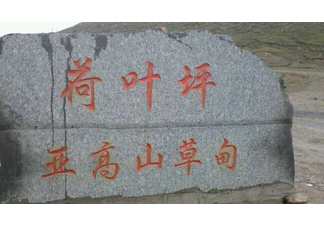 荷叶坪
亚高山草甸